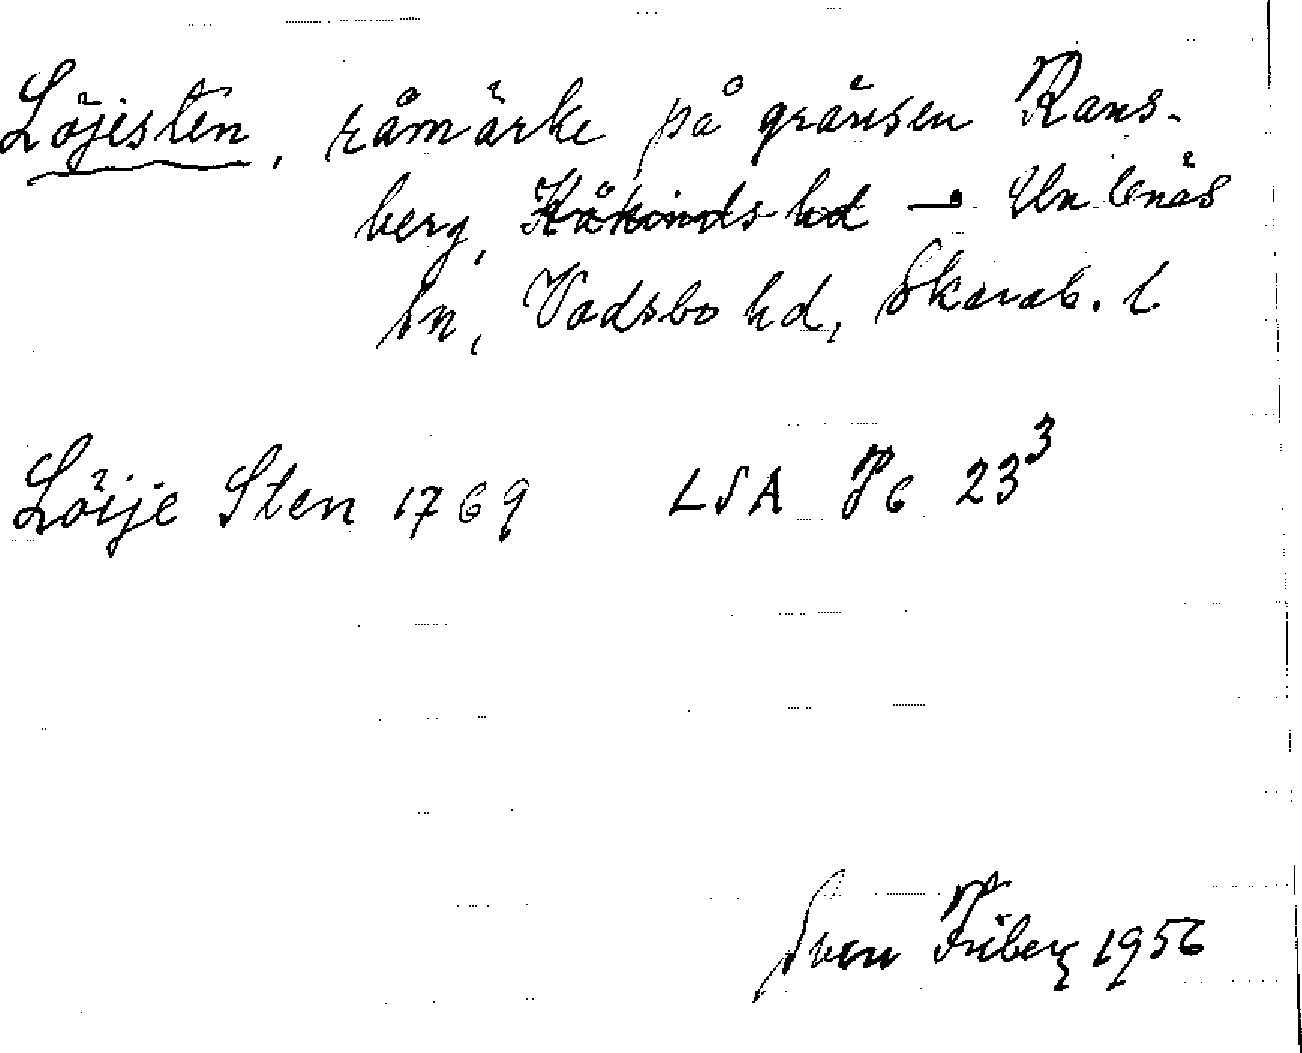 Löjesten, råmärke på gränsen Rans-
berg, Kåkinds hd – Undenäs
sn, Vadsbo hd, Skarab. l
Löije Sten 1769 LSA P6 23³
Sven Friberg 1956